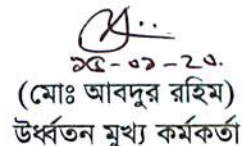 ১৫-০১-২০.
(মোঃ আবদুর রহিম)
উর্ধ্বতন মুখ্য কর্মকর্তা